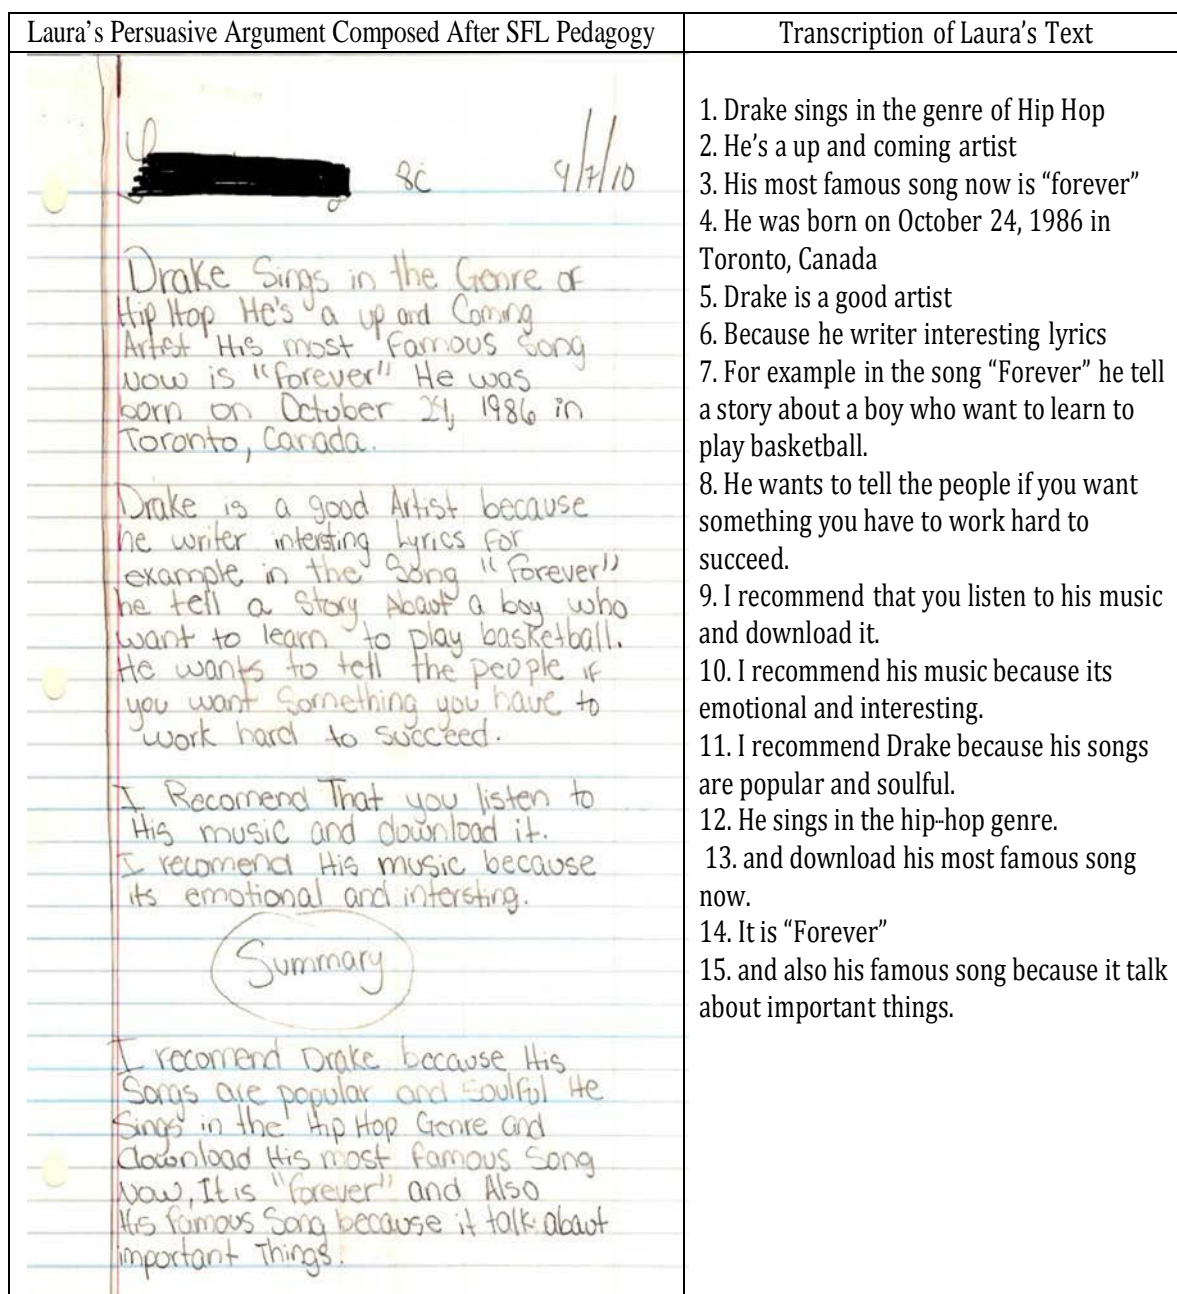 Laura's Persuasive Argument Composed After SFL Pedagogy
8c 9/7/10
Drake Sings in the Genre of
Hip Hop He's a up and Coming
Artist His most famous Song
Now is "forever" He was
born on October 24, 1986 in
Toronto, Canada.
Drake is a good Artist because
he writer intersting Lyrics for
example in the Song "forever"
he tell a Story About a boy who
want to learn to play basketball.
He wants to tell the people if
you want Something you have to
work hard to succeed.
I Recomend That you listen to
His music and download it.
I recomend His music because
its emotional and intersting.
Summary
I recomend Drake because His
Songs are popular and Soulful He
Sings in the Hip Hop Genre and
download His most famous Song
Now, It is "forever" and Also
His famous Song because it talk about
important Things.
Transcription of Laura's Text
1. Drake sings in the genre of Hip Hop
2. He's a up and coming artist
3. His most famous song now is "forever"
4. He was born on October 24, 1986 in
Toronto, Canada
5. Drake is a good artist
6. Because he writer interesting lyrics
7. For example in the song "Forever" he tell
a story about a boy who want to learn to
play basketball.
8. He wants to tell the people if you want
something you have to work hard to
succeed.
9. I recommend that you listen to his music
and download it.
10. I recommend his music because its
emotional and interesting.
11. I recommend Drake because his songs
are popular and soulful.
12. He sings in the hip-hop genre.
13. and download his most famous song
now.
14. It is "Forever"
15. and also his famous song because it talk
about important things.